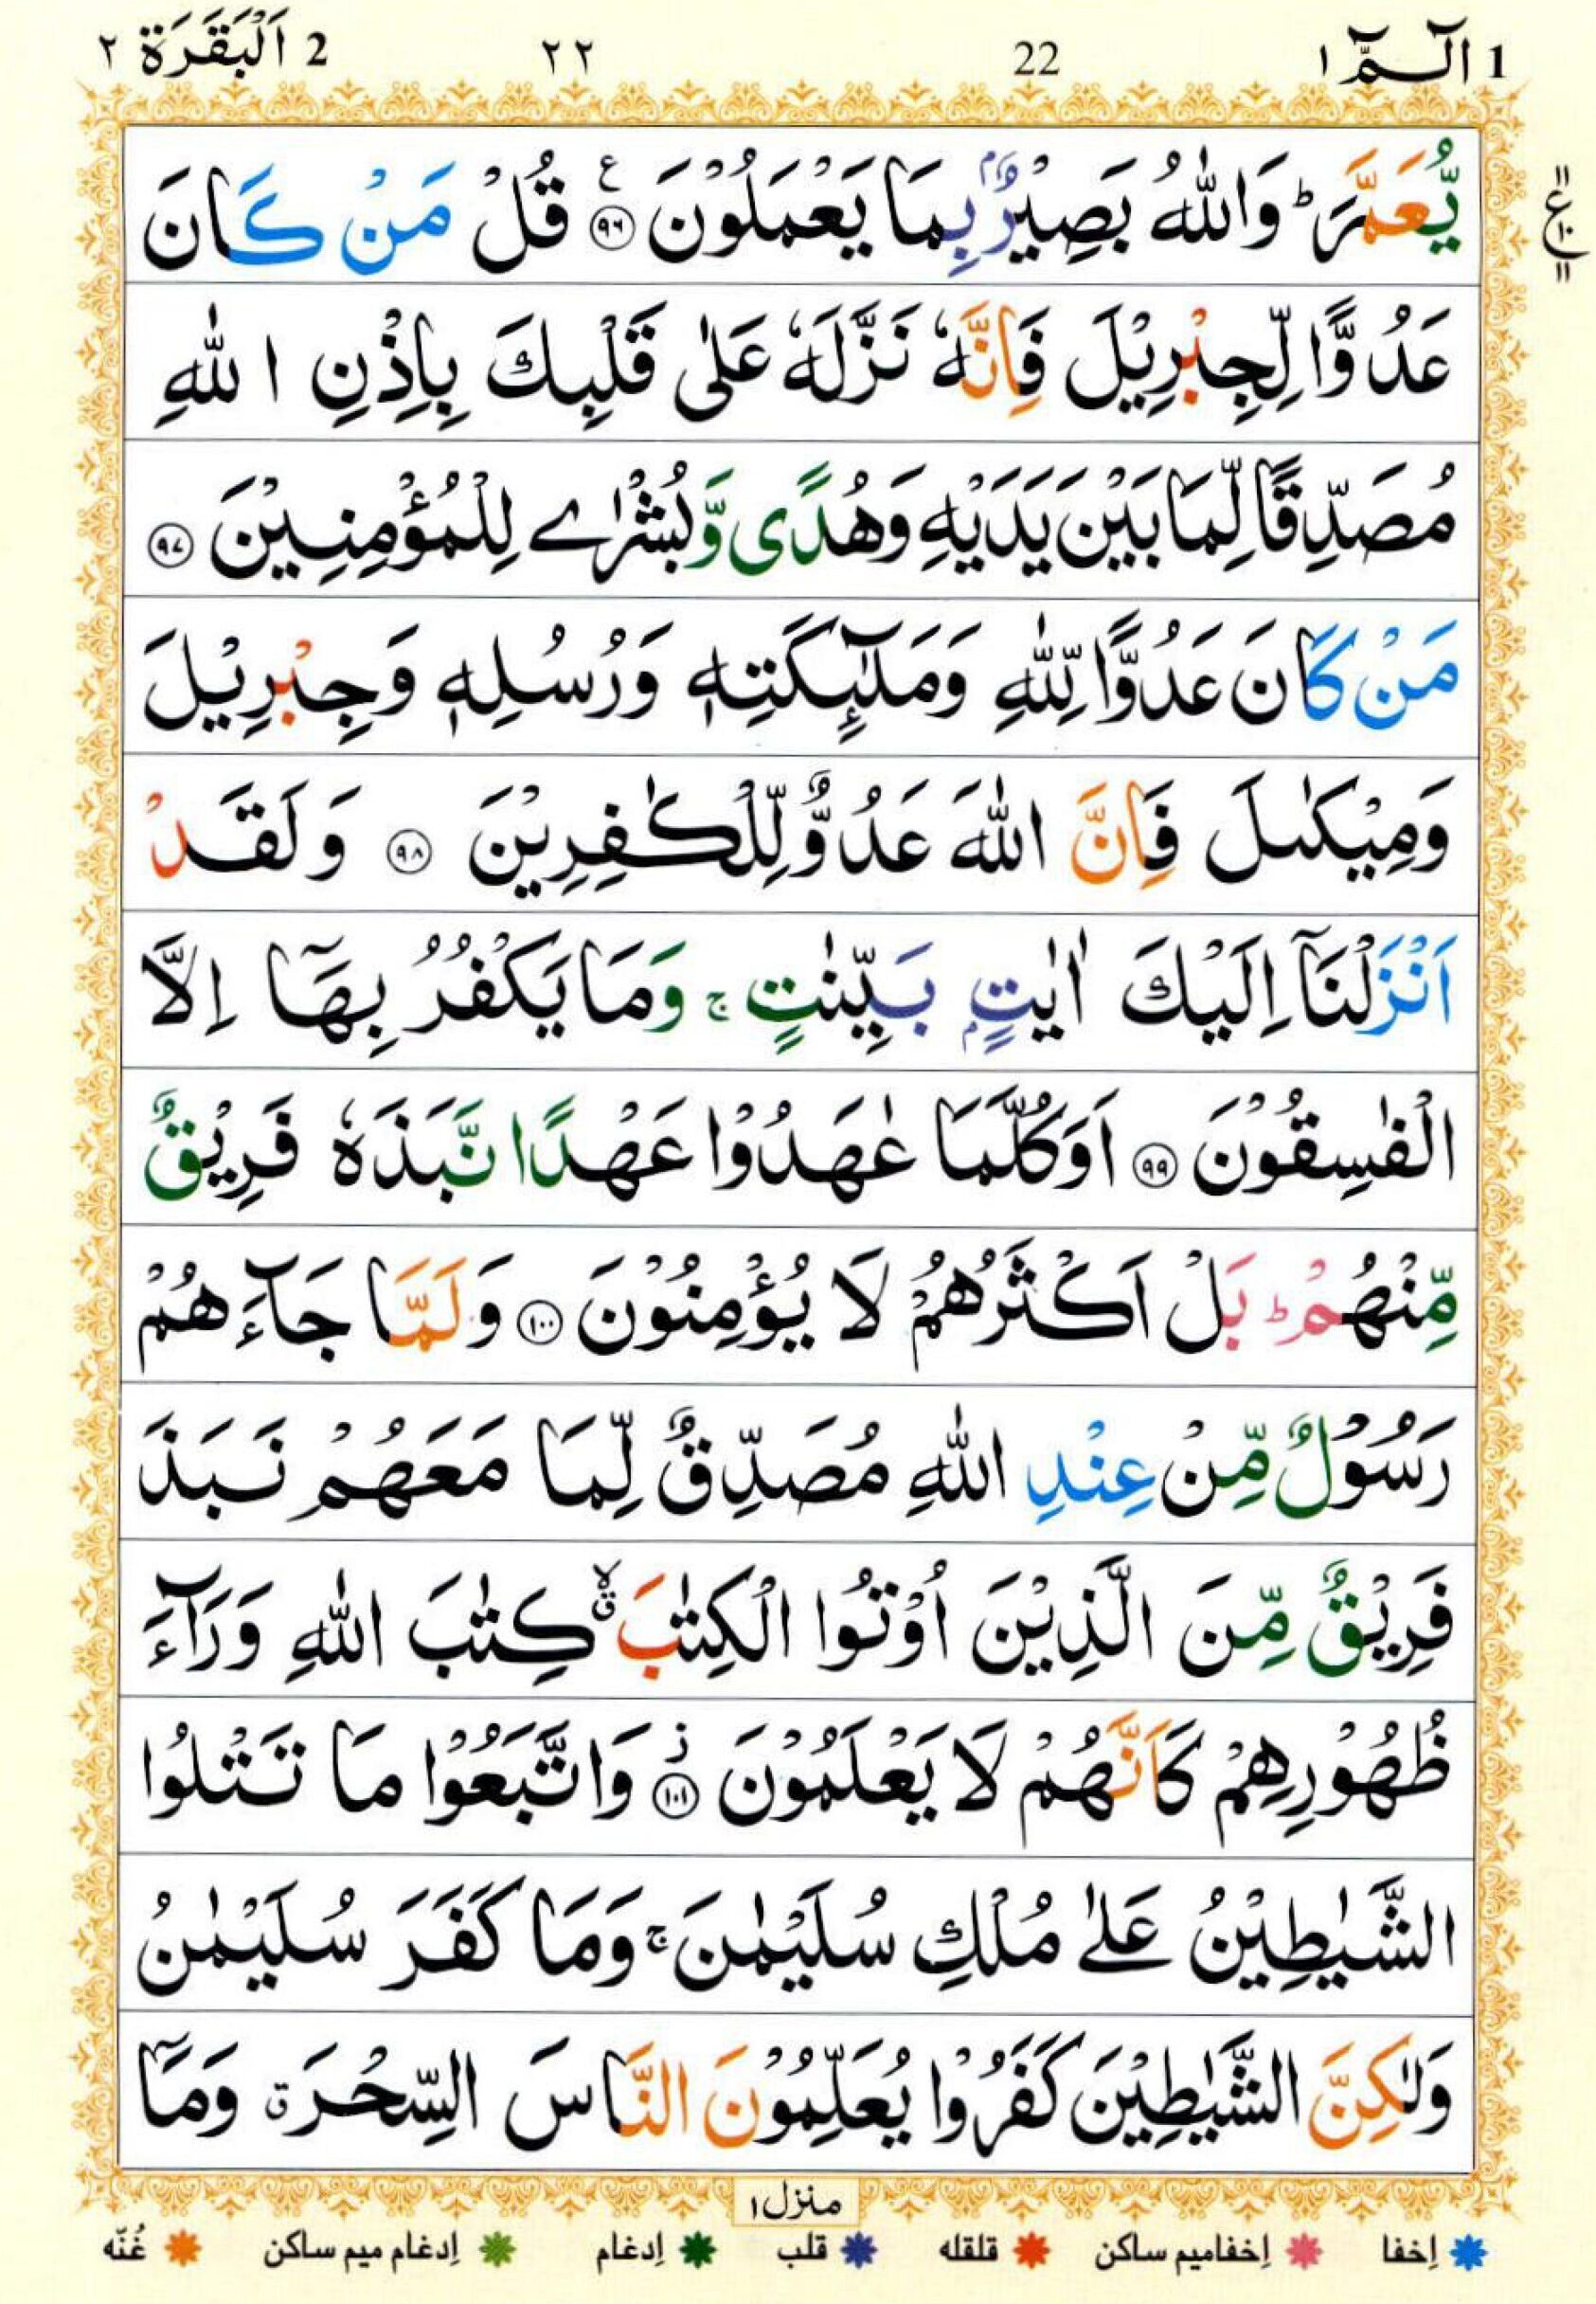 1 الٓـمّٓ ١ 22 ٢٢ 2 اَلْبَقَرَة ٢
يُّعَمَّرَ ؕ وَاللّٰهُ بَصِيْرٌۢ بِمَا يَعْمَلُوْنَ ﴿۹۶﴾ ع قُلْ مَنْ كَانَ
ع ١٠
عَدُوًّا لِّجِبْرِيْلَ فَاِنَّهٗ نَزَّلَهٗ عَلٰى قَلْبِكَ بِاِذْنِ اللّٰهِ
مُصَدِّقًا لِّمَا بَيْنَ يَدَيْهِ وَهُدًى وَّبُشْرٰے لِلْمُؤْمِنِيْنَ ﴿۹۷﴾
مَنْ كَانَ عَدُوًّا لِّلّٰهِ وَمَلٰٓئِكَتِهٖ وَرُسُلِهٖ وَجِبْرِيْلَ
وَمِيْكٰىلَ فَاِنَّ اللّٰهَ عَدُوٌّ لِّلْكٰفِرِيْنَ ﴿۹۸﴾ وَلَقَدْ
اَنْزَلْنَاۤ اِلَيْكَ اٰيٰتٍۭ بَيِّنٰتٍ ۚ وَمَا يَكْفُرُ بِهَاۤ اِلَّا
الْفٰسِقُوْنَ ﴿۹۹﴾ اَوَكُلَّمَا عٰهَدُوْا عَهْدًا نَّبَذَهٗ فَرِيْقٌ
مِّنْهُمْ ؕ بَلْ اَكْثَرُهُمْ لَا يُؤْمِنُوْنَ ﴿۱۰۰﴾ وَلَمَّا جَآءَهُمْ
رَسُوْلٌ مِّنْ عِنْدِ اللّٰهِ مُصَدِّقٌ لِّمَا مَعَهُمْ نَبَذَ
فَرِيْقٌ مِّنَ الَّذِيْنَ اُوْتُوا الْكِتٰبَ ۙۗ كِتٰبَ اللّٰهِ وَرَآءَ
ظُهُوْرِهِمْ كَاَنَّهُمْ لَا يَعْلَمُوْنَ ﴿۱۰۱﴾ ز وَاتَّبَعُوْا مَا تَتْلُوا
الشَّيٰطِيْنُ عَلٰى مُلْكِ سُلَيْمٰنَ ۚ وَمَا كَفَرَ سُلَيْمٰنُ
وَلٰكِنَّ الشَّيٰطِيْنَ كَفَرُوْا يُعَلِّمُوْنَ النَّاسَ السِّحْرَ ۗ وَمَاۤ
منزل ١
إخفا إخفاميم ساكن قلقله قلب إدغام إدغام ميم ساكن غُنّه